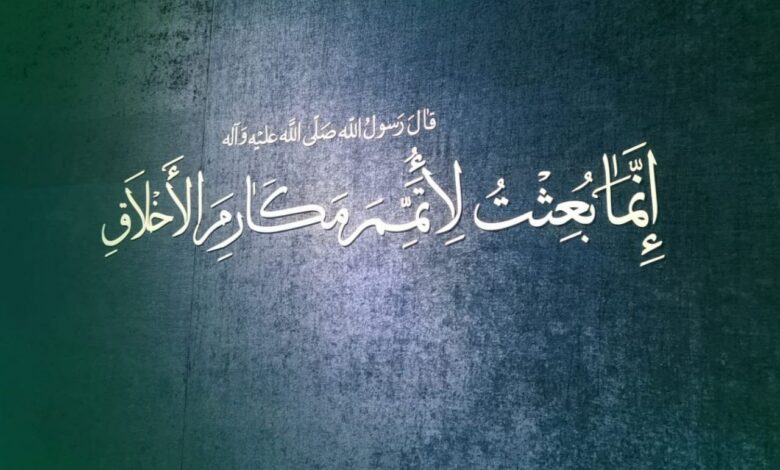 قَالَ رَسُولُ اللّٰهِ صَلَّى اللّٰهُ عَلَيْهِ وَآلِه
إِنَّمَا بُعِثْتُ لِأُتَمِّمَ مَكَارِمَ الأَخْلَاقِ